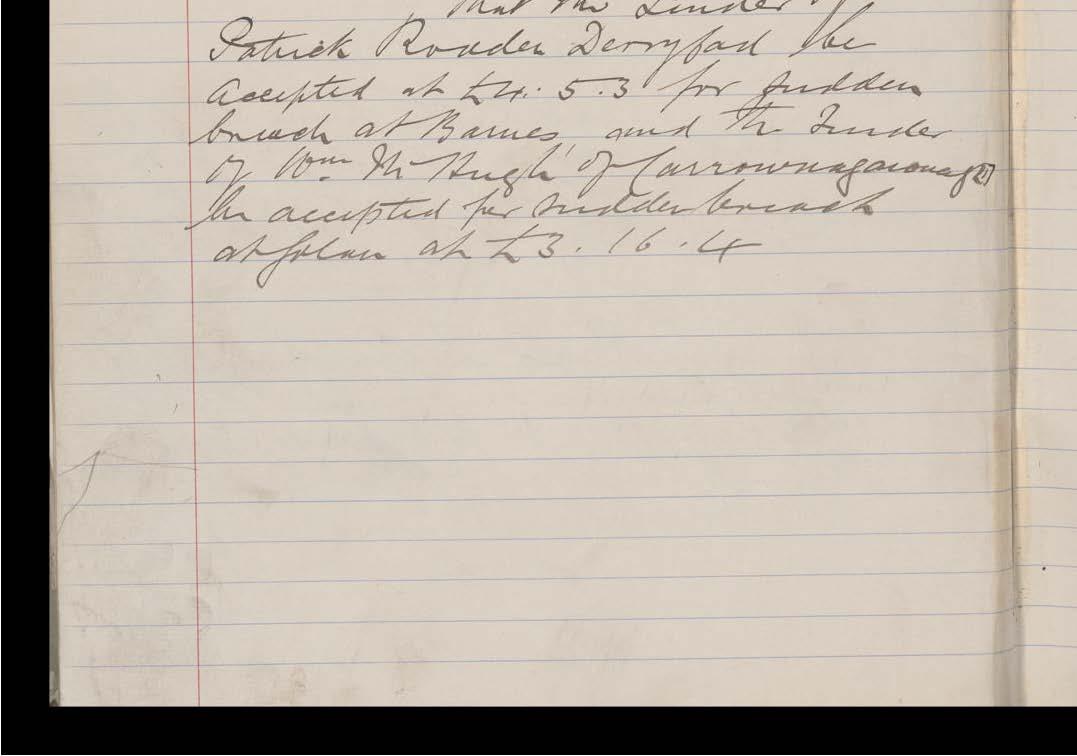 that the Tender of
Patrick Rodden Derryfad be
Accepted at £4. 5. 3 for sudden
breach at Barnes, and the Tender
of Wm. McHugh of
be accepted for sudden breach
at Golan at £3. 16. 4